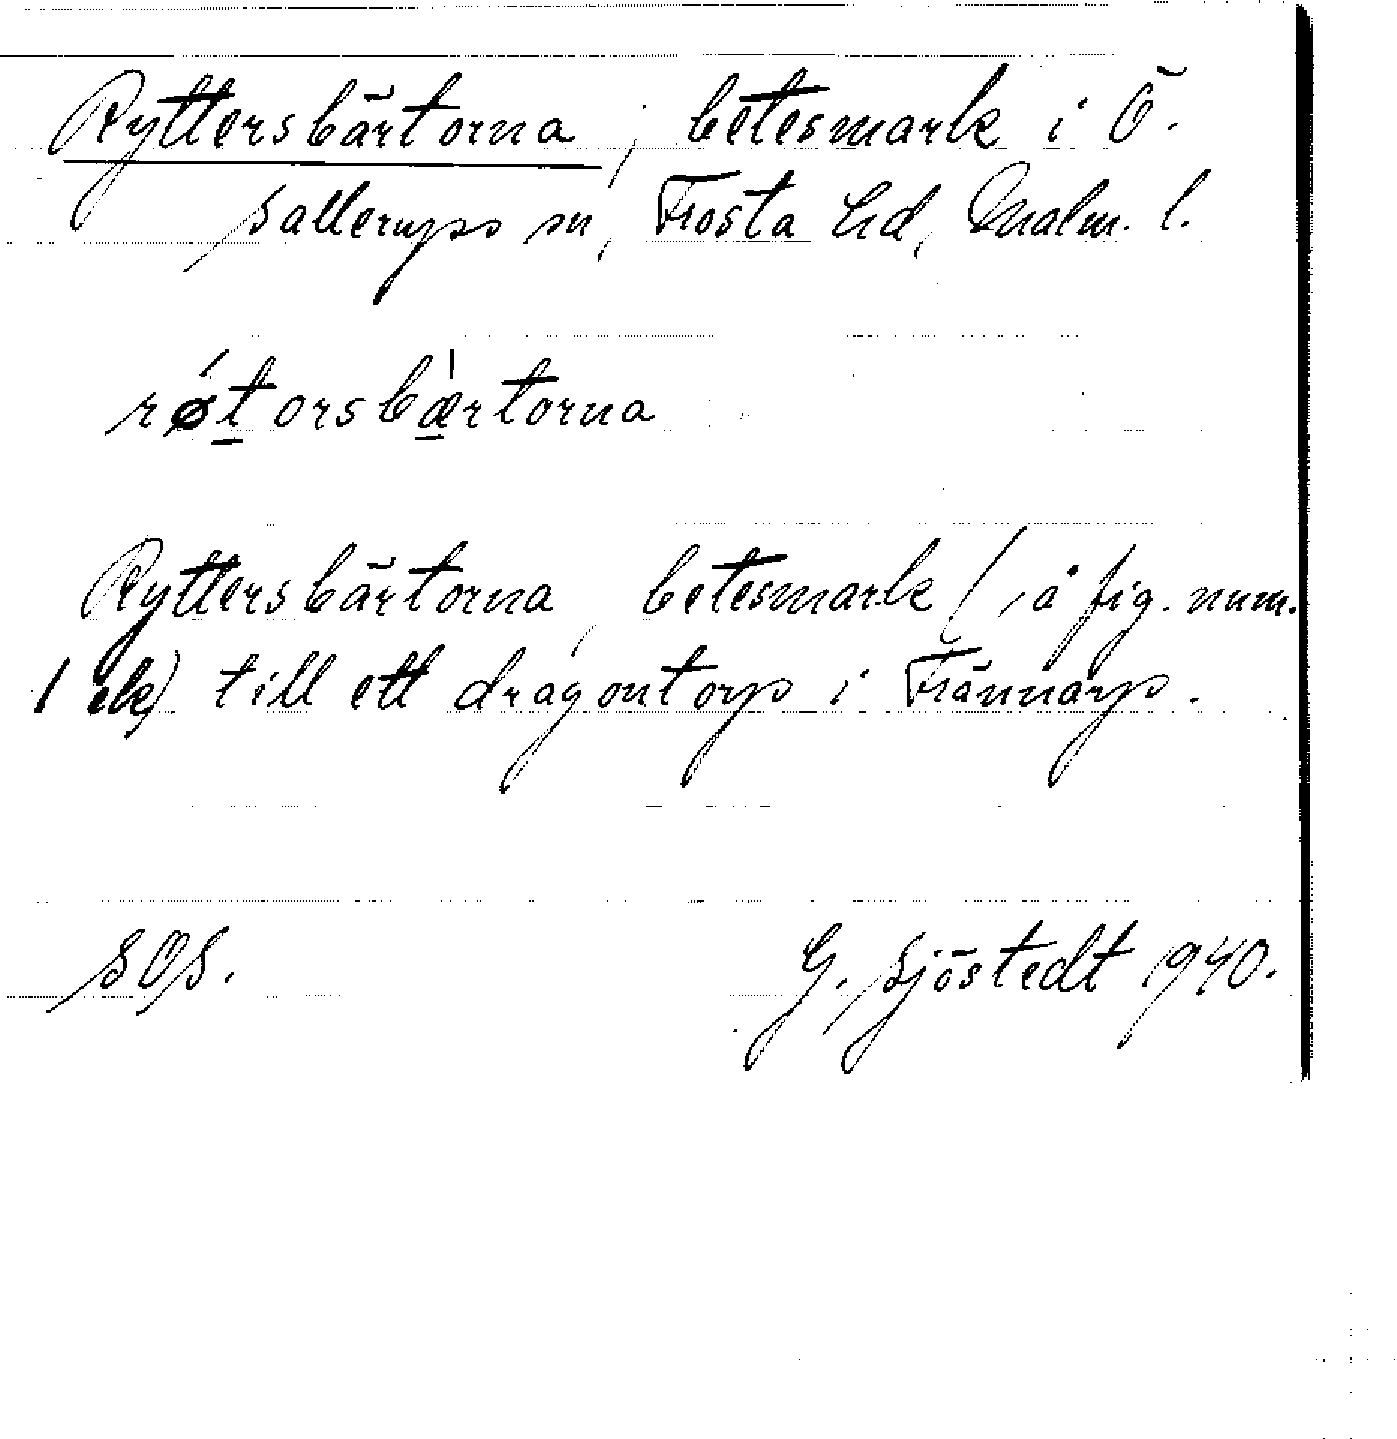 Ryttersbärtorna, betesmark i Ö.
Sallerups sn, Frosta hd, Malm. l.
rǿt̲orsbæ̲̍rtorna
Ryttersbärtorna, betesmark (, å fig. num.
1 ek) till ett dragontorp i Trännarp.
SOS.
G. Sjöstedt 1940.